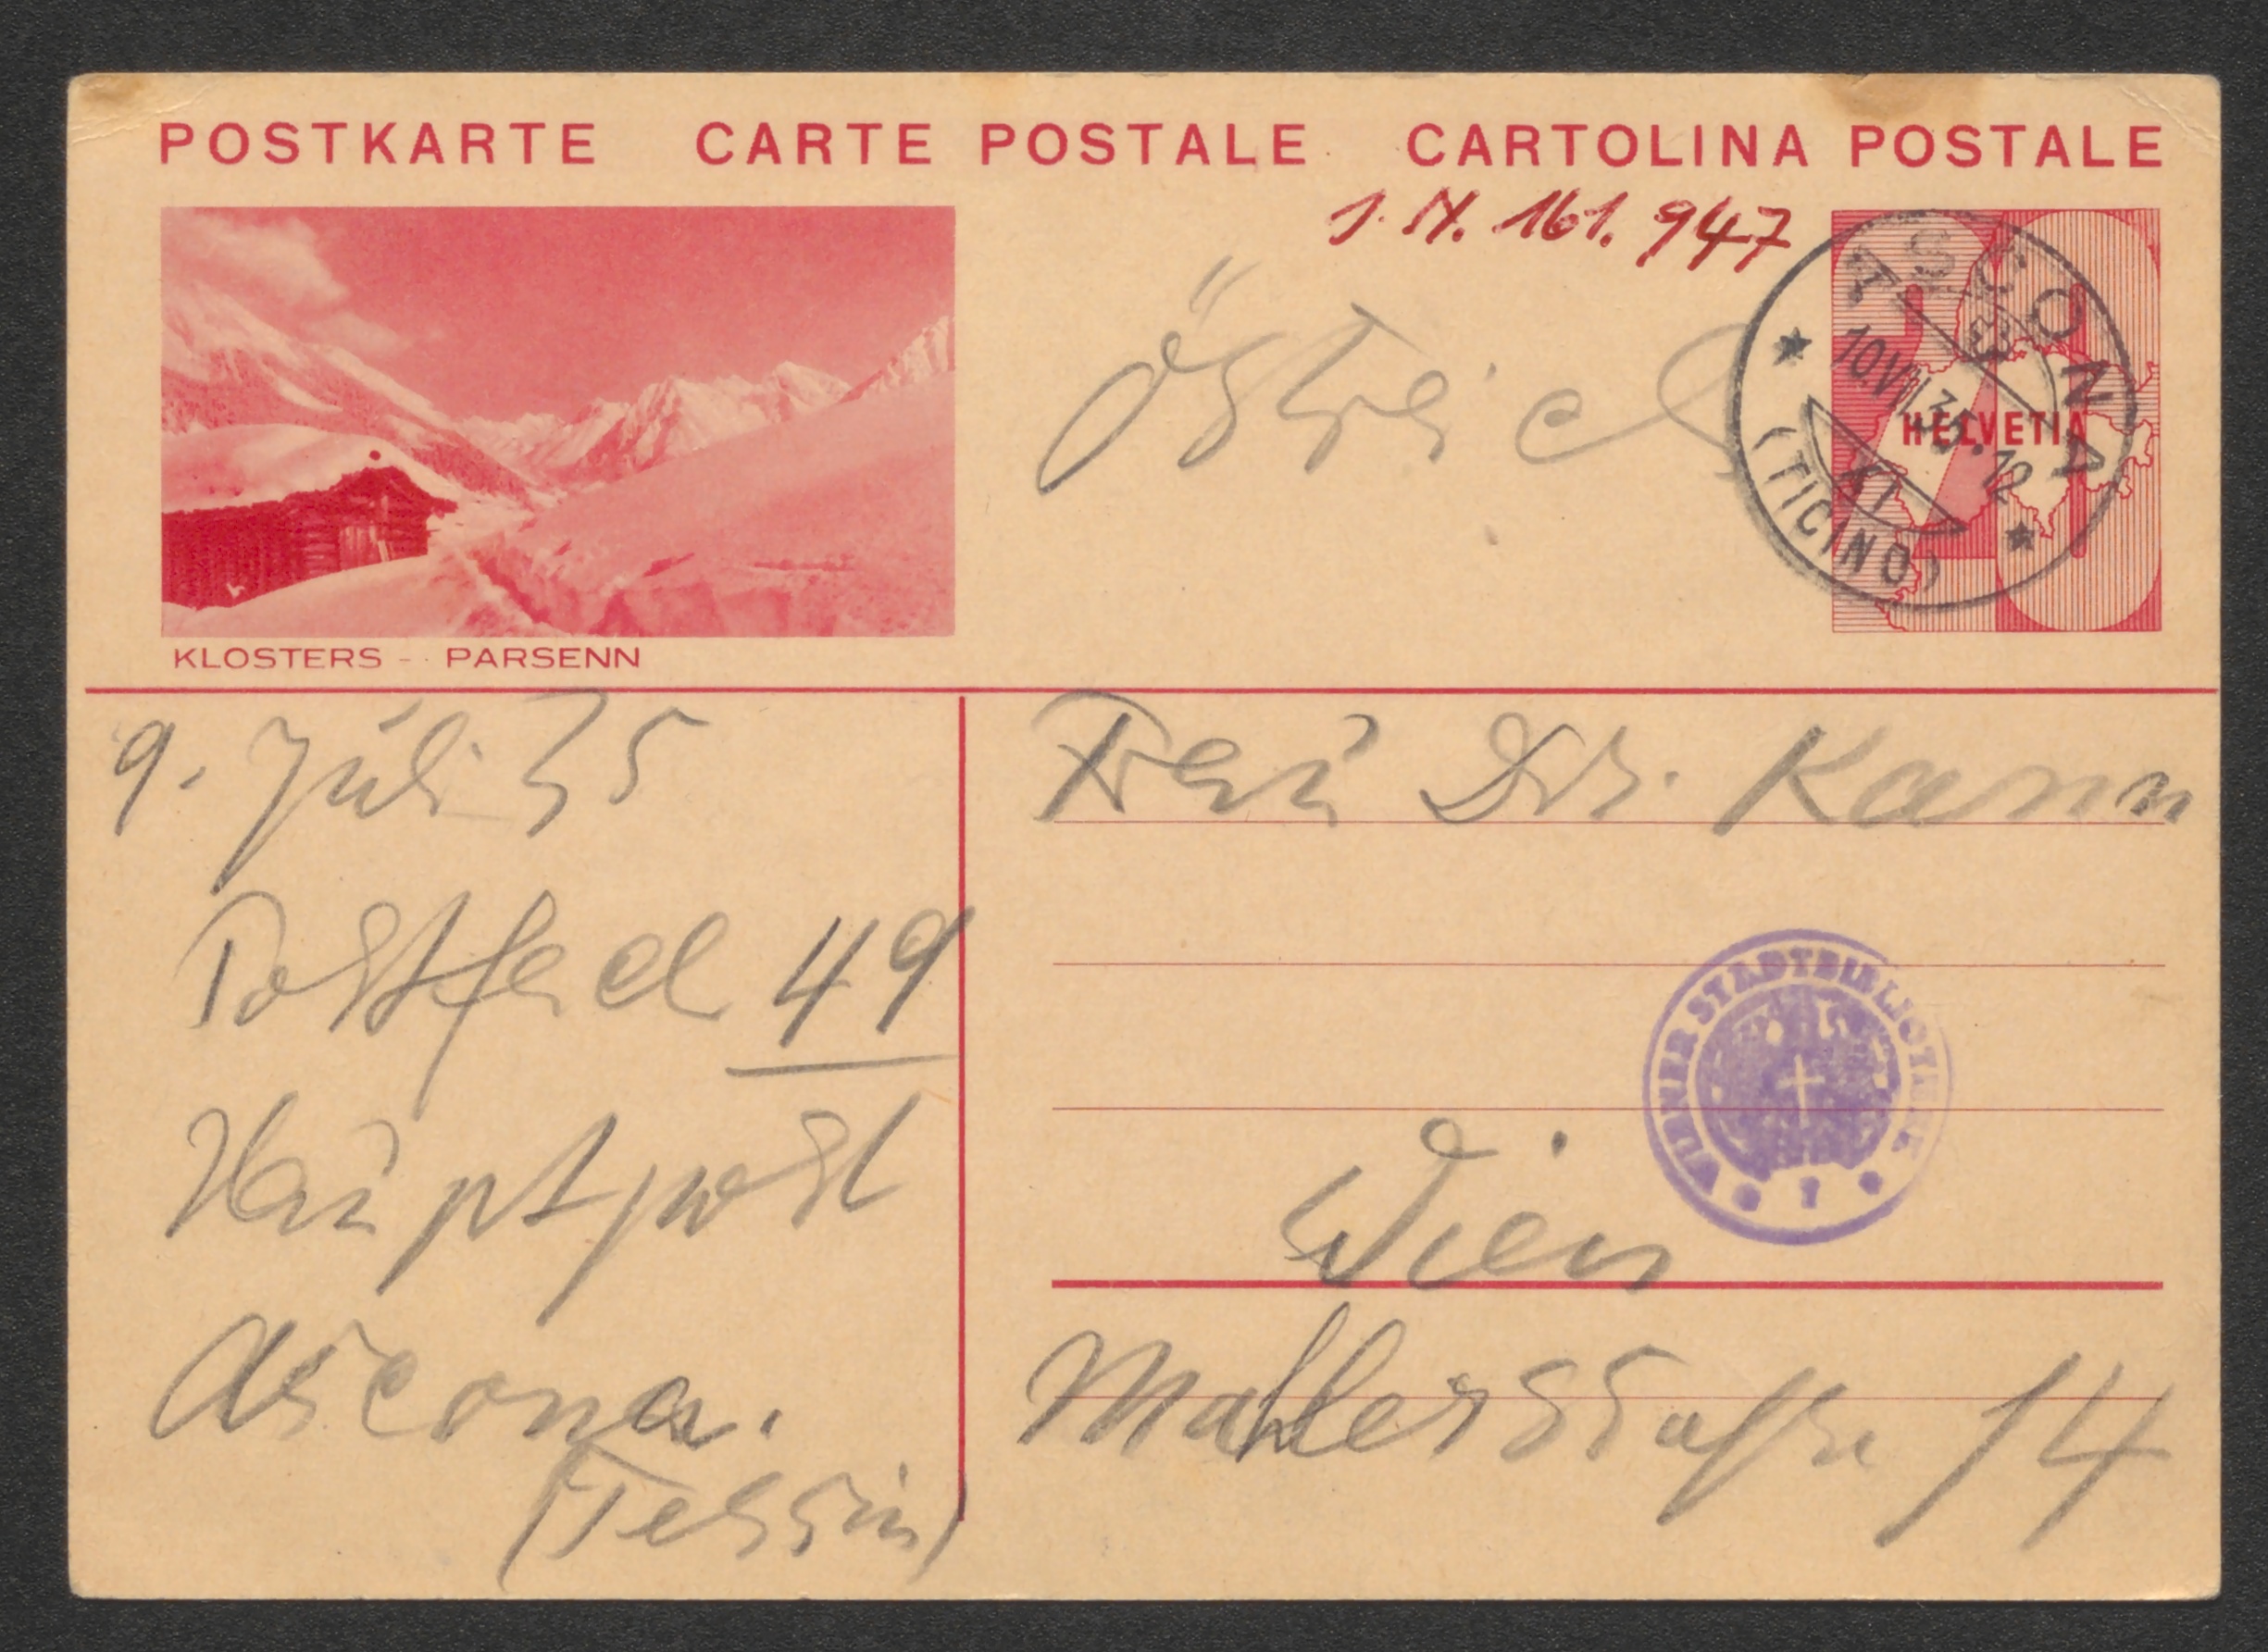 POSTKARTE CARTE POSTALE CARTOLINA POSTALE
J. N. 161.947
Östreich
ASCONA
10.VII.35.12
XI
(TICINO)
HELVETIA
KLOSTERS - PARSENN
9. Juli 35
Postfach 49
Hauptpost
Ascona.
(Tessin)
Frau Dr. Kann
WIENER STADTBIBLIOTHEK
Wien
Mahlerstraße 14